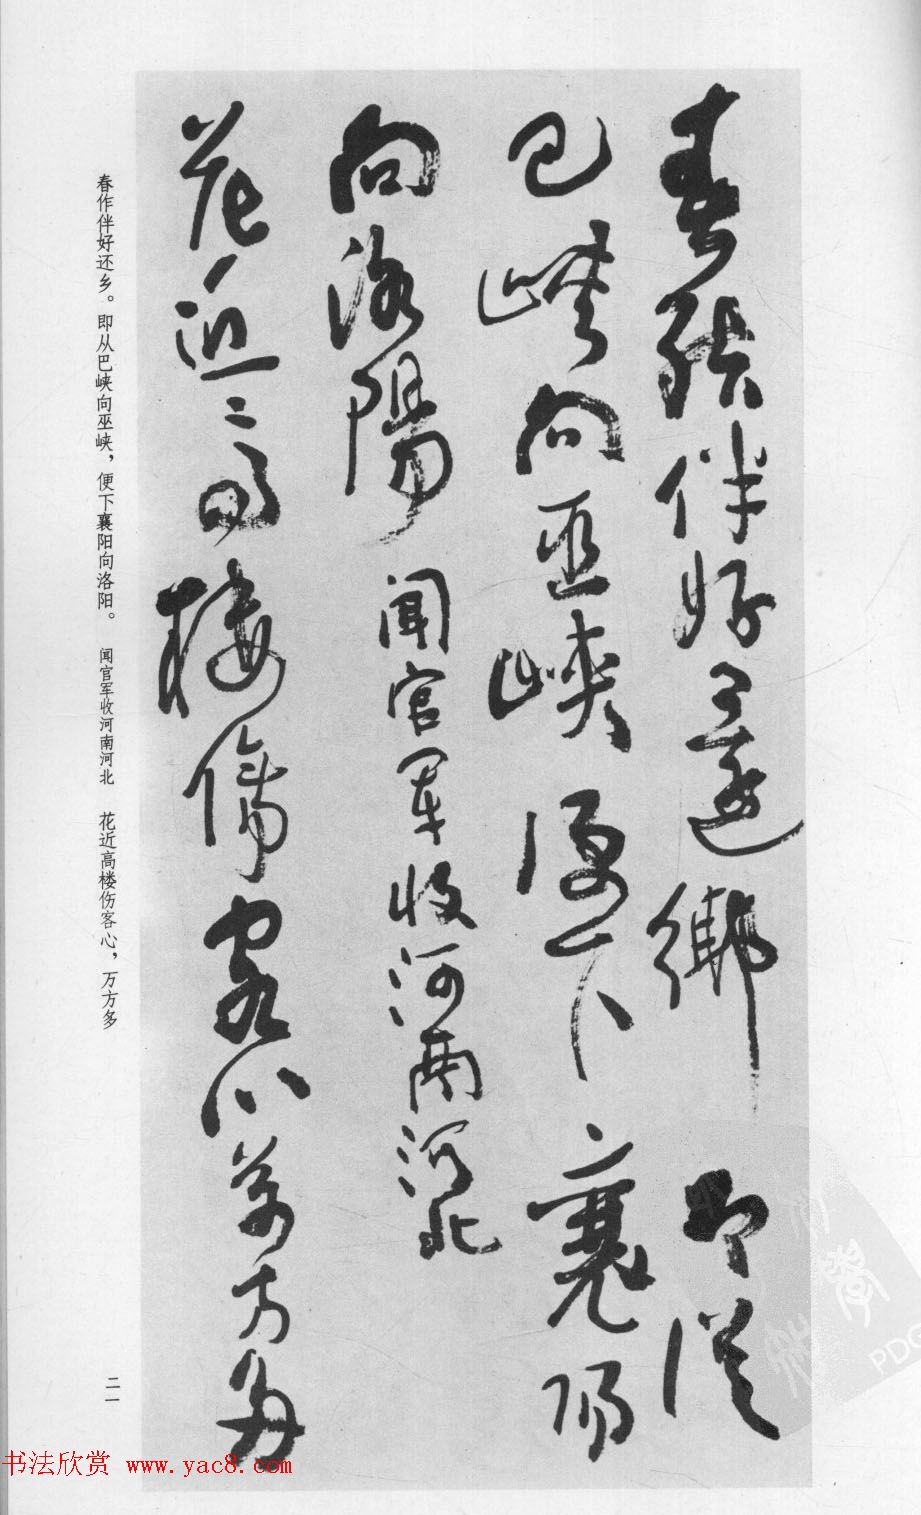 春伴好還鄉即從
巴峽向巫峽便下襄陽
向洛陽 聞官軍收河南河北
花近高樓傷客心萬方多
春作伴好还乡。即从巴峡向巫峡，便下襄阳向洛阳。 闻官军收河南河北 花近高楼伤客心，万方多
二一
书法欣赏 www.yac8.com
PDG